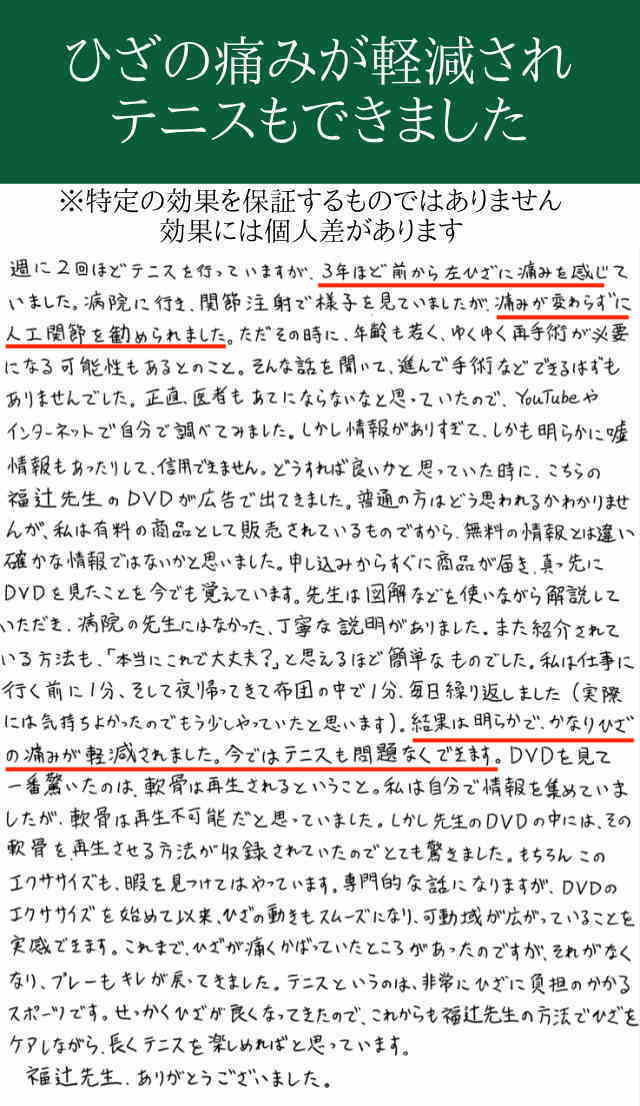 ひざの痛みが軽減され
テニスもできました
※特定の効果を保証するものではありません
効果には個人差があります
週に2回ほどテニスを行っていますが、3年ほど前から左ひざに痛みを感じて
いました。病院に行き、関節注射で様子を見ていましたが、痛みが変わらずに
人工関節を勧められました。ただその時に、年齢も若く、ゆくゆく再手術が必要
になる可能性もあるとのこと。そんな話を聞いて、進んで手術などできるはずも
ありませんでした。正直、医者もあてにならないなと思っていたので、YouTubeや
インターネットで自分で調べてみました。しかし情報がありすぎて、しかも明らかに嘘
情報もあったりして、信用できません。どうすれば良いかと思っていた時に、こちらの
福辻先生のDVDが広告で出てきました。普通の方はどう思われるかわかりませ
んが、私は有料の商品として販売されているものですから、無料の情報とは違い
確かな情報ではないかと思いました。申し込みからすぐに商品が届き、真っ先に
DVDを見たことを今でも覚えています。先生は図解などを使いながら解説して
いただき、病院の先生にはなかった、丁寧な説明がありました。また紹介されて
いる方法も、「本当にこれで大丈夫?」と思えるほど簡単なものでした。私は仕事に
行く前に1分、そして夜帰ってきて布団の中で1分、毎日繰り返しました(実際
には気持ちよかったのでもう少しやっていたと思います)。結果は明らかで、かなりひざ
の痛みが軽減されました。今ではテニスも問題なくできます。DVDを見て
一番驚いたのは、軟骨は再生されるということ。私は自分で情報を集めていま
したが、軟骨は再生不可能だと思っていました。しかし先生のDVDの中には、その
軟骨を再生させる方法が収録されていたのでとても驚きました。もちろんこの
エクササイズも、暇を見つけてはやっています。専門的な話になりますが、DVDの
エクササイズを始めて以来、ひざの動きもスムーズになり、可動域が広がっていることを
実感できます。これまで、ひざが痛くかばっていたところがあったのですが、それがなく
なり、プレーもキレが戻ってきました。テニスというのは、非常にひざに負担のかかる
スポーツです。せっかくひざが良くなってきたので、これからも福辻先生の方法でひざを
ケアしながら、長くテニスを楽しめればと思っています。
福辻先生、ありがとうございました。